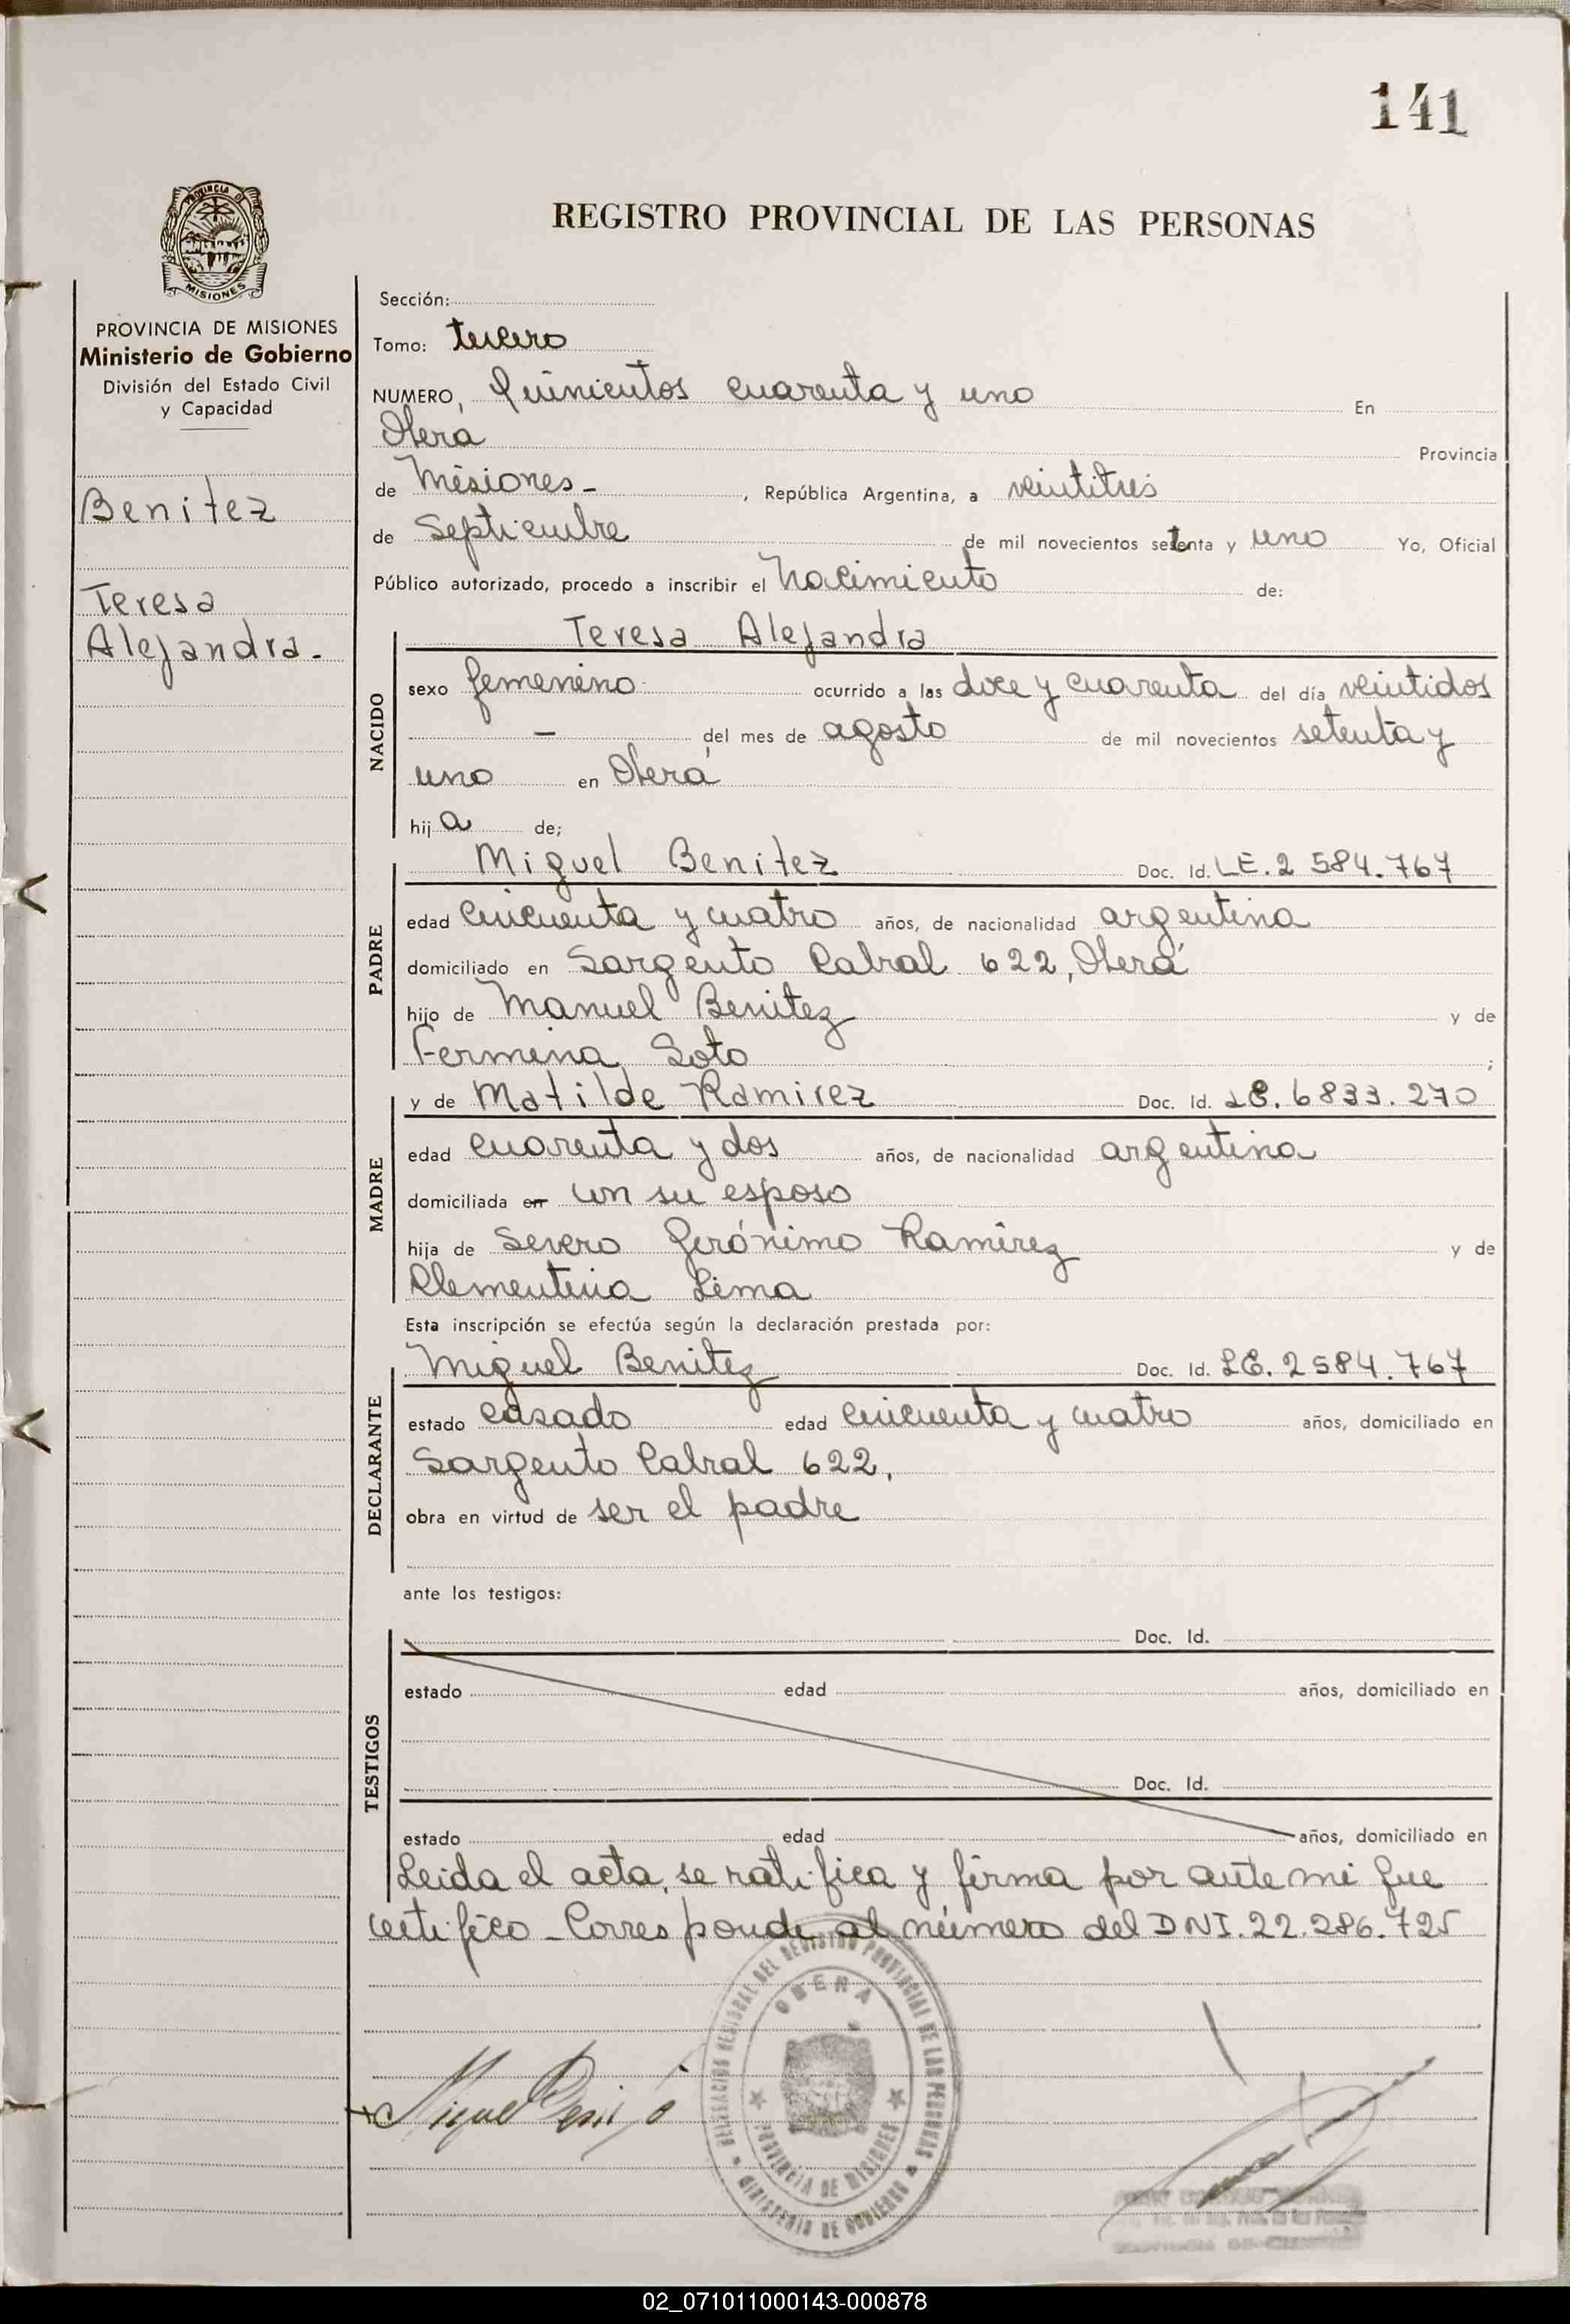 141
PROVINCIA DE
MISIONES
REGISTRO PROVINCIAL DE LAS PERSONAS
PROVINCIA DE MISIONES
Ministerio de Gobierno
División del Estado Civil
y Capacidad
Benitez
Teresa
Alejandra.
Sección:
Tomo: tercero
NUMERO, Quinientos cuarenta y uno En
Oberá Provincia
de Misiones - , República Argentina, a veintitres
de Septiembre de mil novecientos setenta y uno Yo, Oficial
Público autorizado, procedo a inscribir el Nacimiento de:
NACIDO
Teresa Alejandra
sexo femenino ocurrido a las doce y cuarenta del día veintidos
- del mes de agosto de mil novecientos setenta y
uno en Oberá
hija de;
PADRE
Miguel Benitez Doc. Id. LE. 2 584.767
edad cincuenta y cuatro años, de nacionalidad argentina
domiciliado en Sargento Cabral 622, Oberá
hijo de Manuel Benitez y de
Fermina Soto ;
MADRE
y de Matilde Ramirez Doc. Id. LC. 6833.270
edad cuarenta y dos años, de nacionalidad argentina
domiciliada en con su esposo
hija de Severo Gerónimo Ramírez y de
Clementina Lima
Esta inscripción se efectúa según la declaración prestada por:
DECLARANTE
Miguel Benitez Doc. Id. LE. 2584.767
estado casado edad cincuenta y cuatro años, domiciliado en
Sargento Cabral 622,
obra en virtud de ser el padre
ante los testigos:
TESTIGOS
Doc. Id.
estado edad años, domiciliado en
Doc. Id.
estado edad años, domiciliado en
Leida el acta, se ratifica y firma por ante mi que
certifico - Corresponde al número del DNI. 22.286.725
DELEGACION REGIONAL DEL REGISTRO PROVINCIAL DE LAS PERSONAS
OBERA
PROVINCIA DE MISIONES
MINISTERIO DE GOBIERNO
Miguel Benitez
02_071011000143-000878